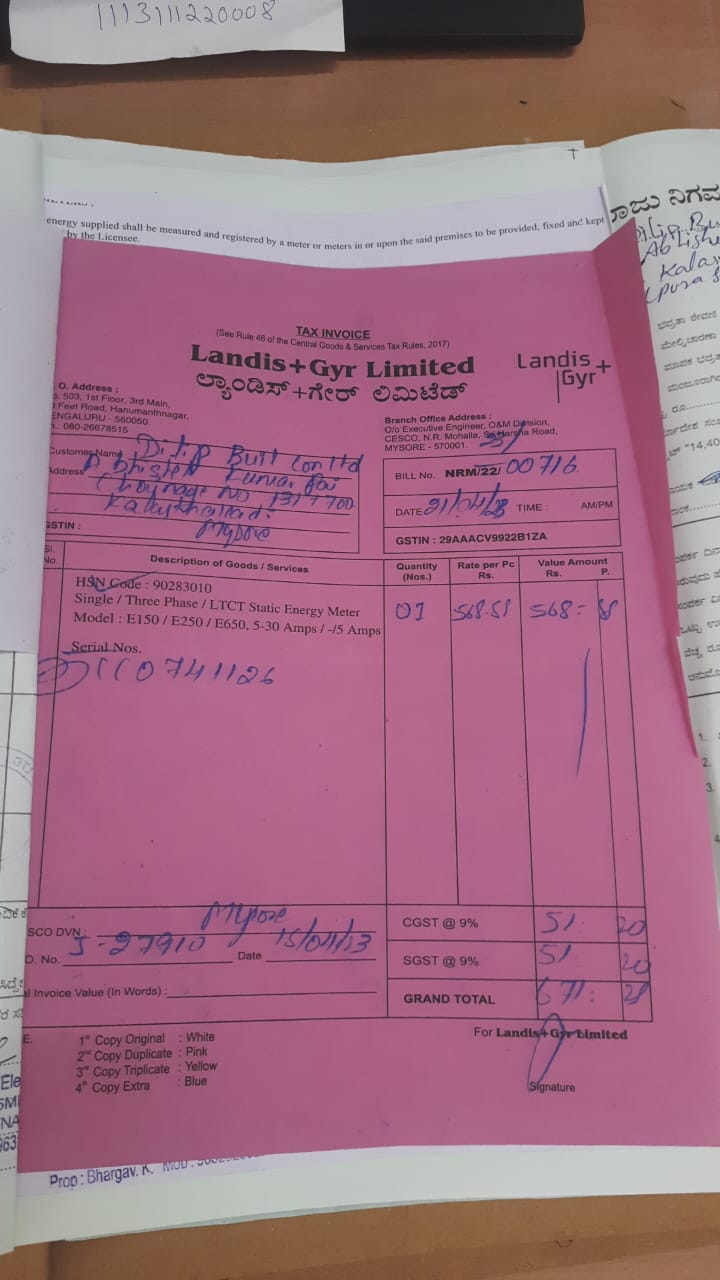 1113111220008
energy supplied shall be measured and registered by a meter or meters in or upon the said premises to be provided, fixed and kept
by the Licensee.
TAX INVOICE
(See Rule 46 of the Central Goods & Services Tax Rules, 2017)
Landis+Gyr Limited
ಲ್ಯಾಂಡಿಸ್+ಗೇರ್ ಲಿಮಿಟೆಡ್
Landis+
Gyr
O. Address :
503, 1st Floor, 3rd Main,
Feet Road, Hanumanthnagar,
ENGALURU - 560050.
080-26678515
Branch Office Address :
O/o Executive Engineer, O&M Division,
CESCO, N.R. Mohalla, Road,
MYSORE - 570001.
Customer Name Dilip Buil Con ltd
Address
Mysore
GSTIN :
BILL No. NRM/22/ 00716
DATE 21/04/23 TIME : AM/PM
GSTIN : 29AAACV9922B1ZA
Sl. No. Description of Goods / Services Quantity (Nos.) Rate per Pc Rs. Value Amount Rs. P.
HSN Code : 90283010
Single / Three Phase / LTCT Static Energy Meter
Model : E150 / E250 / E650, 5-30 Amps / -/5 Amps
01 568.58 568= 58
Serial Nos.
0741126
SCO DVN : Mysore
O. No. J-27910 Date
l Invoice Value (In Words) :
CGST @ 9% 51 20
SGST @ 9% 51 20
GRAND TOTAL 671:
E.
1st Copy Original : White
2nd Copy Duplicate : Pink
3rd Copy Triplicate : Yellow
4th Copy Extra : Blue
For Landis+Gyr Limited
Signature
Prop : Bhargav. K.